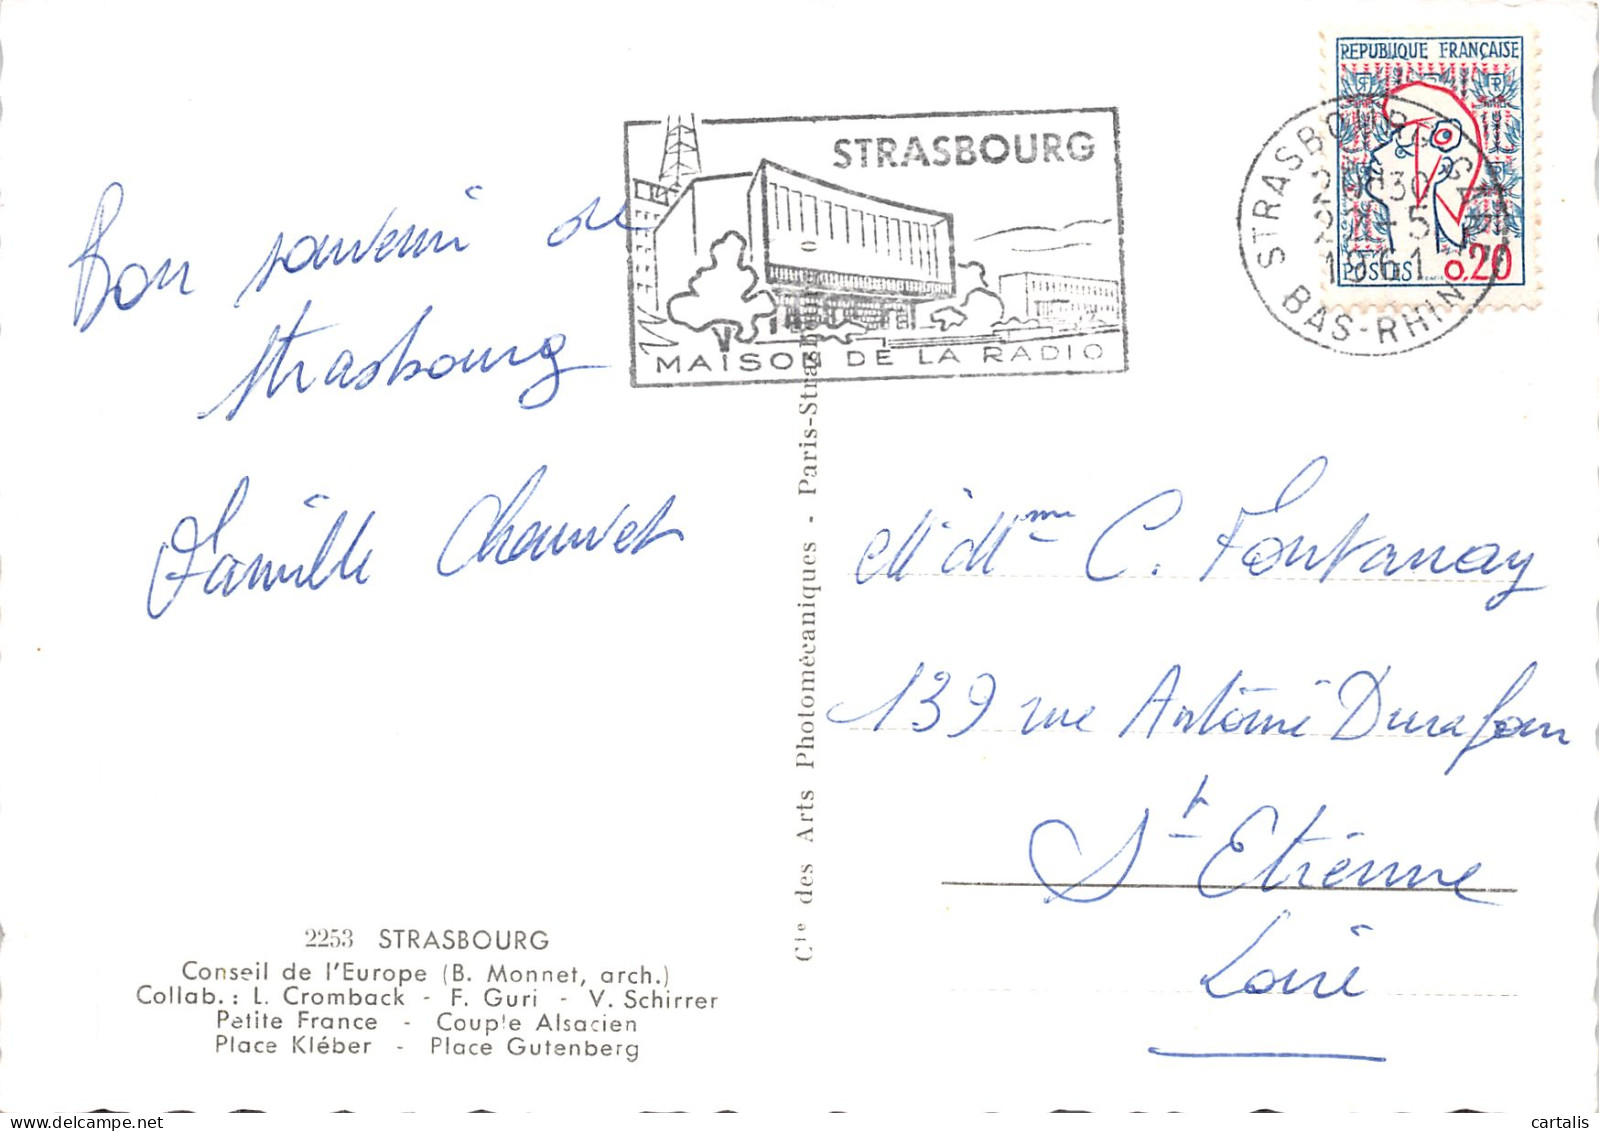 REPUBLIQUE FRANÇAISE
POSTES 0.20
STRASBOURG
BAS-RHIN
1961
STRASBOURG
MAISON DE LA RADIO
Bon souvenir de
Strasbourg
Famille Chauvet
Cie des Arts Photomécaniques - Paris-Strasbourg
M. Mme C. Fontanay
139 rue Antoine Durafour
St Etienne
Loire
2253 STRASBOURG
Conseil de l'Europe (B. Monnet, arch.)
Collab.: L. Cromback - F. Guri - V. Schirrer
Petite France - Couple Alsacien
Place Kléber - Place Gutenberg
cartalis